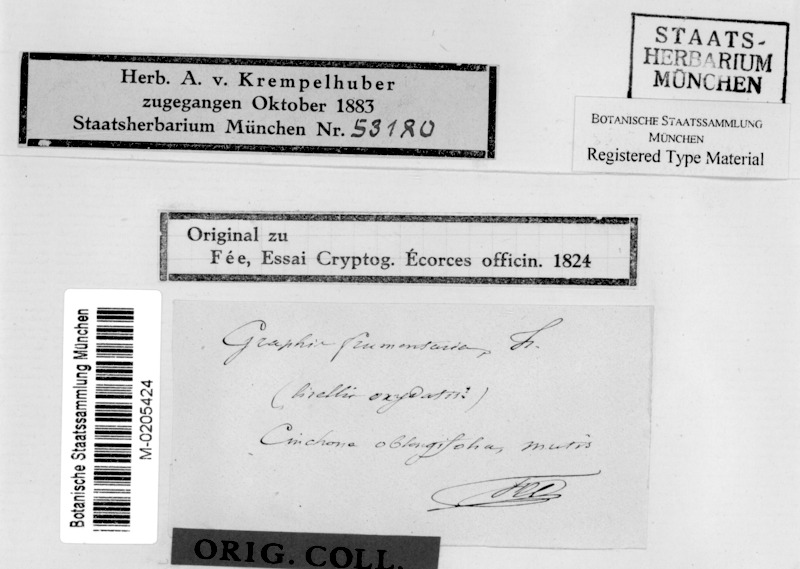 STAATS-
HERBARIUM
MÜNCHEN
Herb. A. v. Krempelhuber
zugegangen Oktober 1883
Staatsherbarium München Nr. 53180
BOTANISCHE STAATSSAMMLUNG
MÜNCHEN
Registered Type Material
Original zu
Fée, Essai Cryptog. Écorces officin. 1824
Graphis frumentaria,
(lirellis oxydatis)
Cinchona oblongifolia, mutis
Fée
Botanische Staatssammlung München
M-0205424
ORIG. COLL.